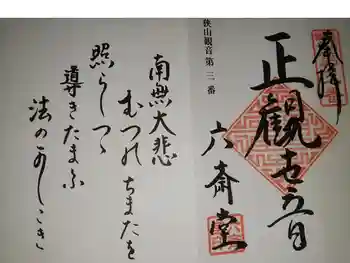 奉拝
狭山観音第三番
正觀世音
六斎堂
南無大悲
むつのちまたを
照らしつゝ
導きたまふ
法のかしこき